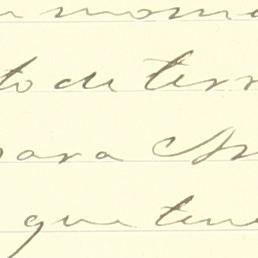 mome
to de terr
para
que tene